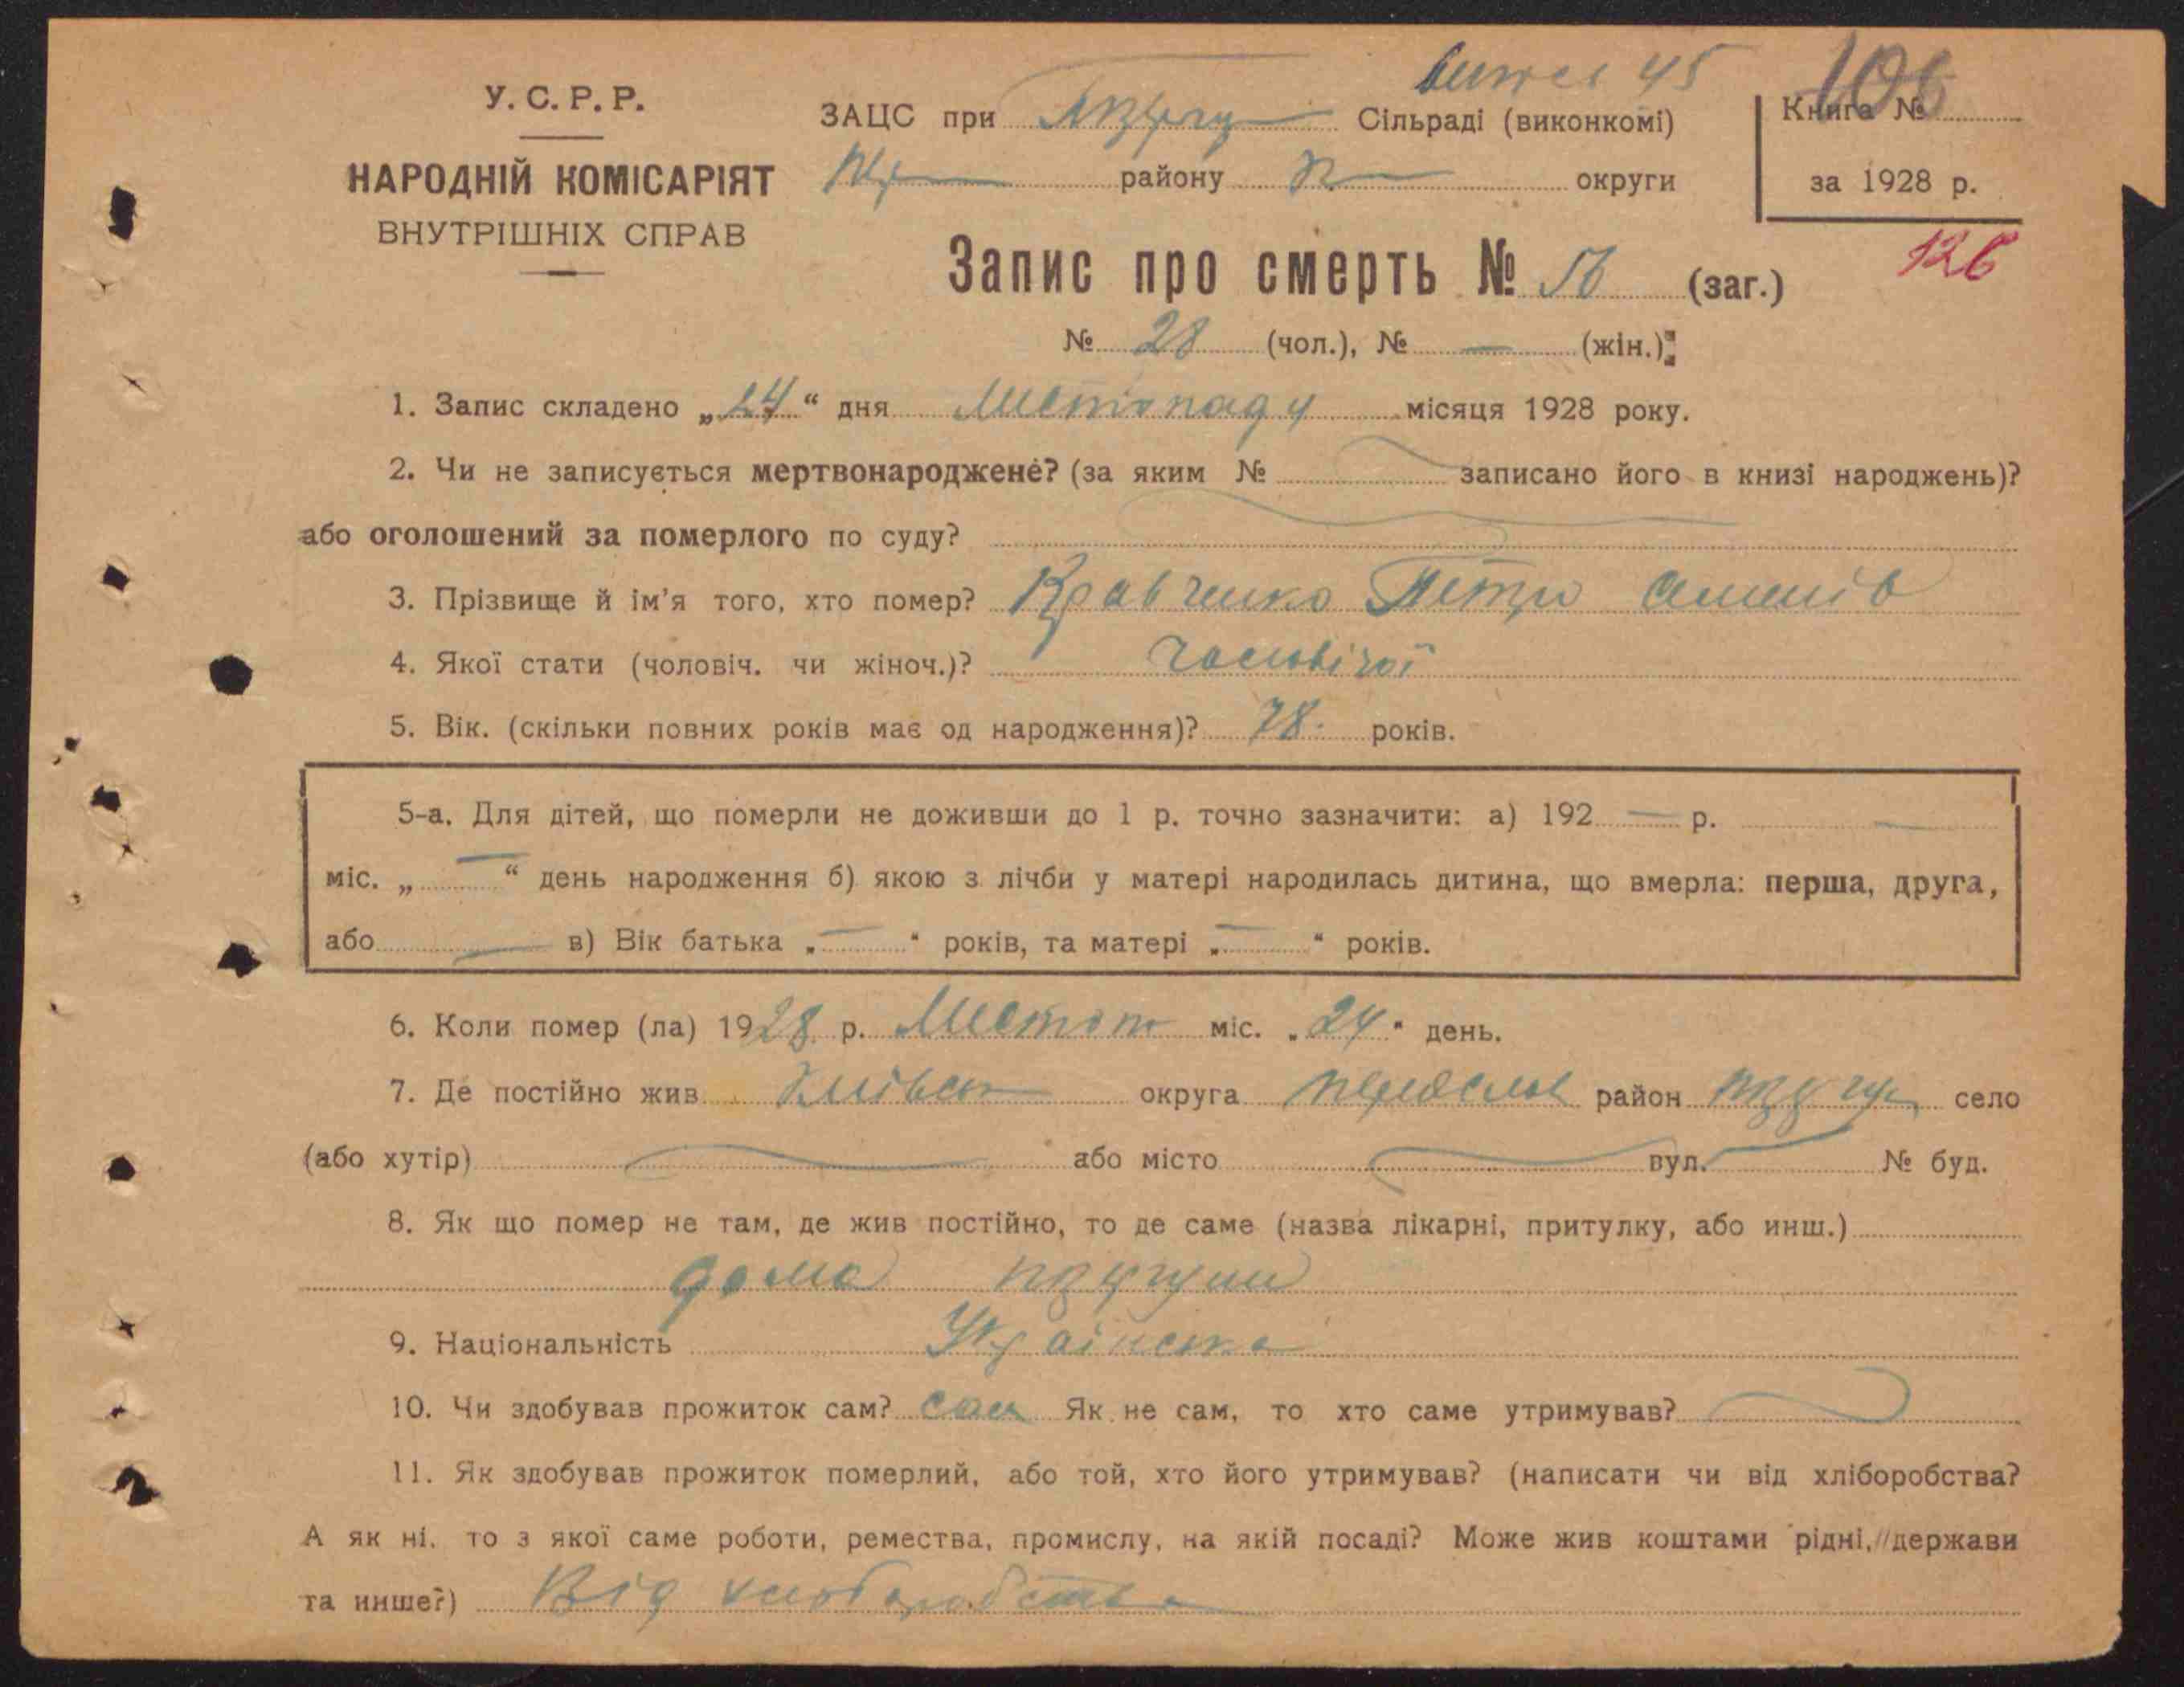 У. С. Р. Р.
НАРОДНІЙ КОМІСАРІЯТ
ВНУТРІШНІХ СПРАВ
45
ЗАЦС при Сільраді (виконкомі)
району округи
Книга № 106
за 1928 р.
126
Запис про смерть № 56 (заг.)
№ 28 (чол.), № — (жін.);
1. Запис складено „24“ дня Листопаду місяця 1928 року.
2. Чи не записується мертвонароджене? (за яким № записано його в книзі народжень)?
або оголошений за померлого по суду?
3. Прізвище й ім'я того, хто помер? Кравченко Петро
4. Якої стати (чоловіч. чи жіноч.)? Чоловічої
5. Вік. (скільки повних років має од народження)? 78. років.
5-а. Для дітей, що померли не доживши до 1 р. точно зазначити: а) 192 — р. —
міс. „ — “ день народження б) якою з лічби у матері народилась дитина, що вмерла: перша, друга,
або — в) Вік батька „ — “ років, та матері „ — “ років.
6. Коли помер (ла) 1928 р. Листоп міс. „24“ день.
7. Де постійно жив Київськ округа Переясл район село
(або хутір) або місто вул. № буд.
8. Як що помер не там, де жив постійно, то де саме (назва лікарні, притулку, або инш.)
дома
9. Національність Українська
10. Чи здобував прожиток сам? сам Як не сам, то хто саме утримував?
11. Як здобував прожиток померлий, або той, хто його утримував? (написати чи від хліборобства?
А як ні, то з якої саме роботи, ремества, промислу, на якій посаді? Може жив коштами рідні, держави
та инше?) Від хліборобства